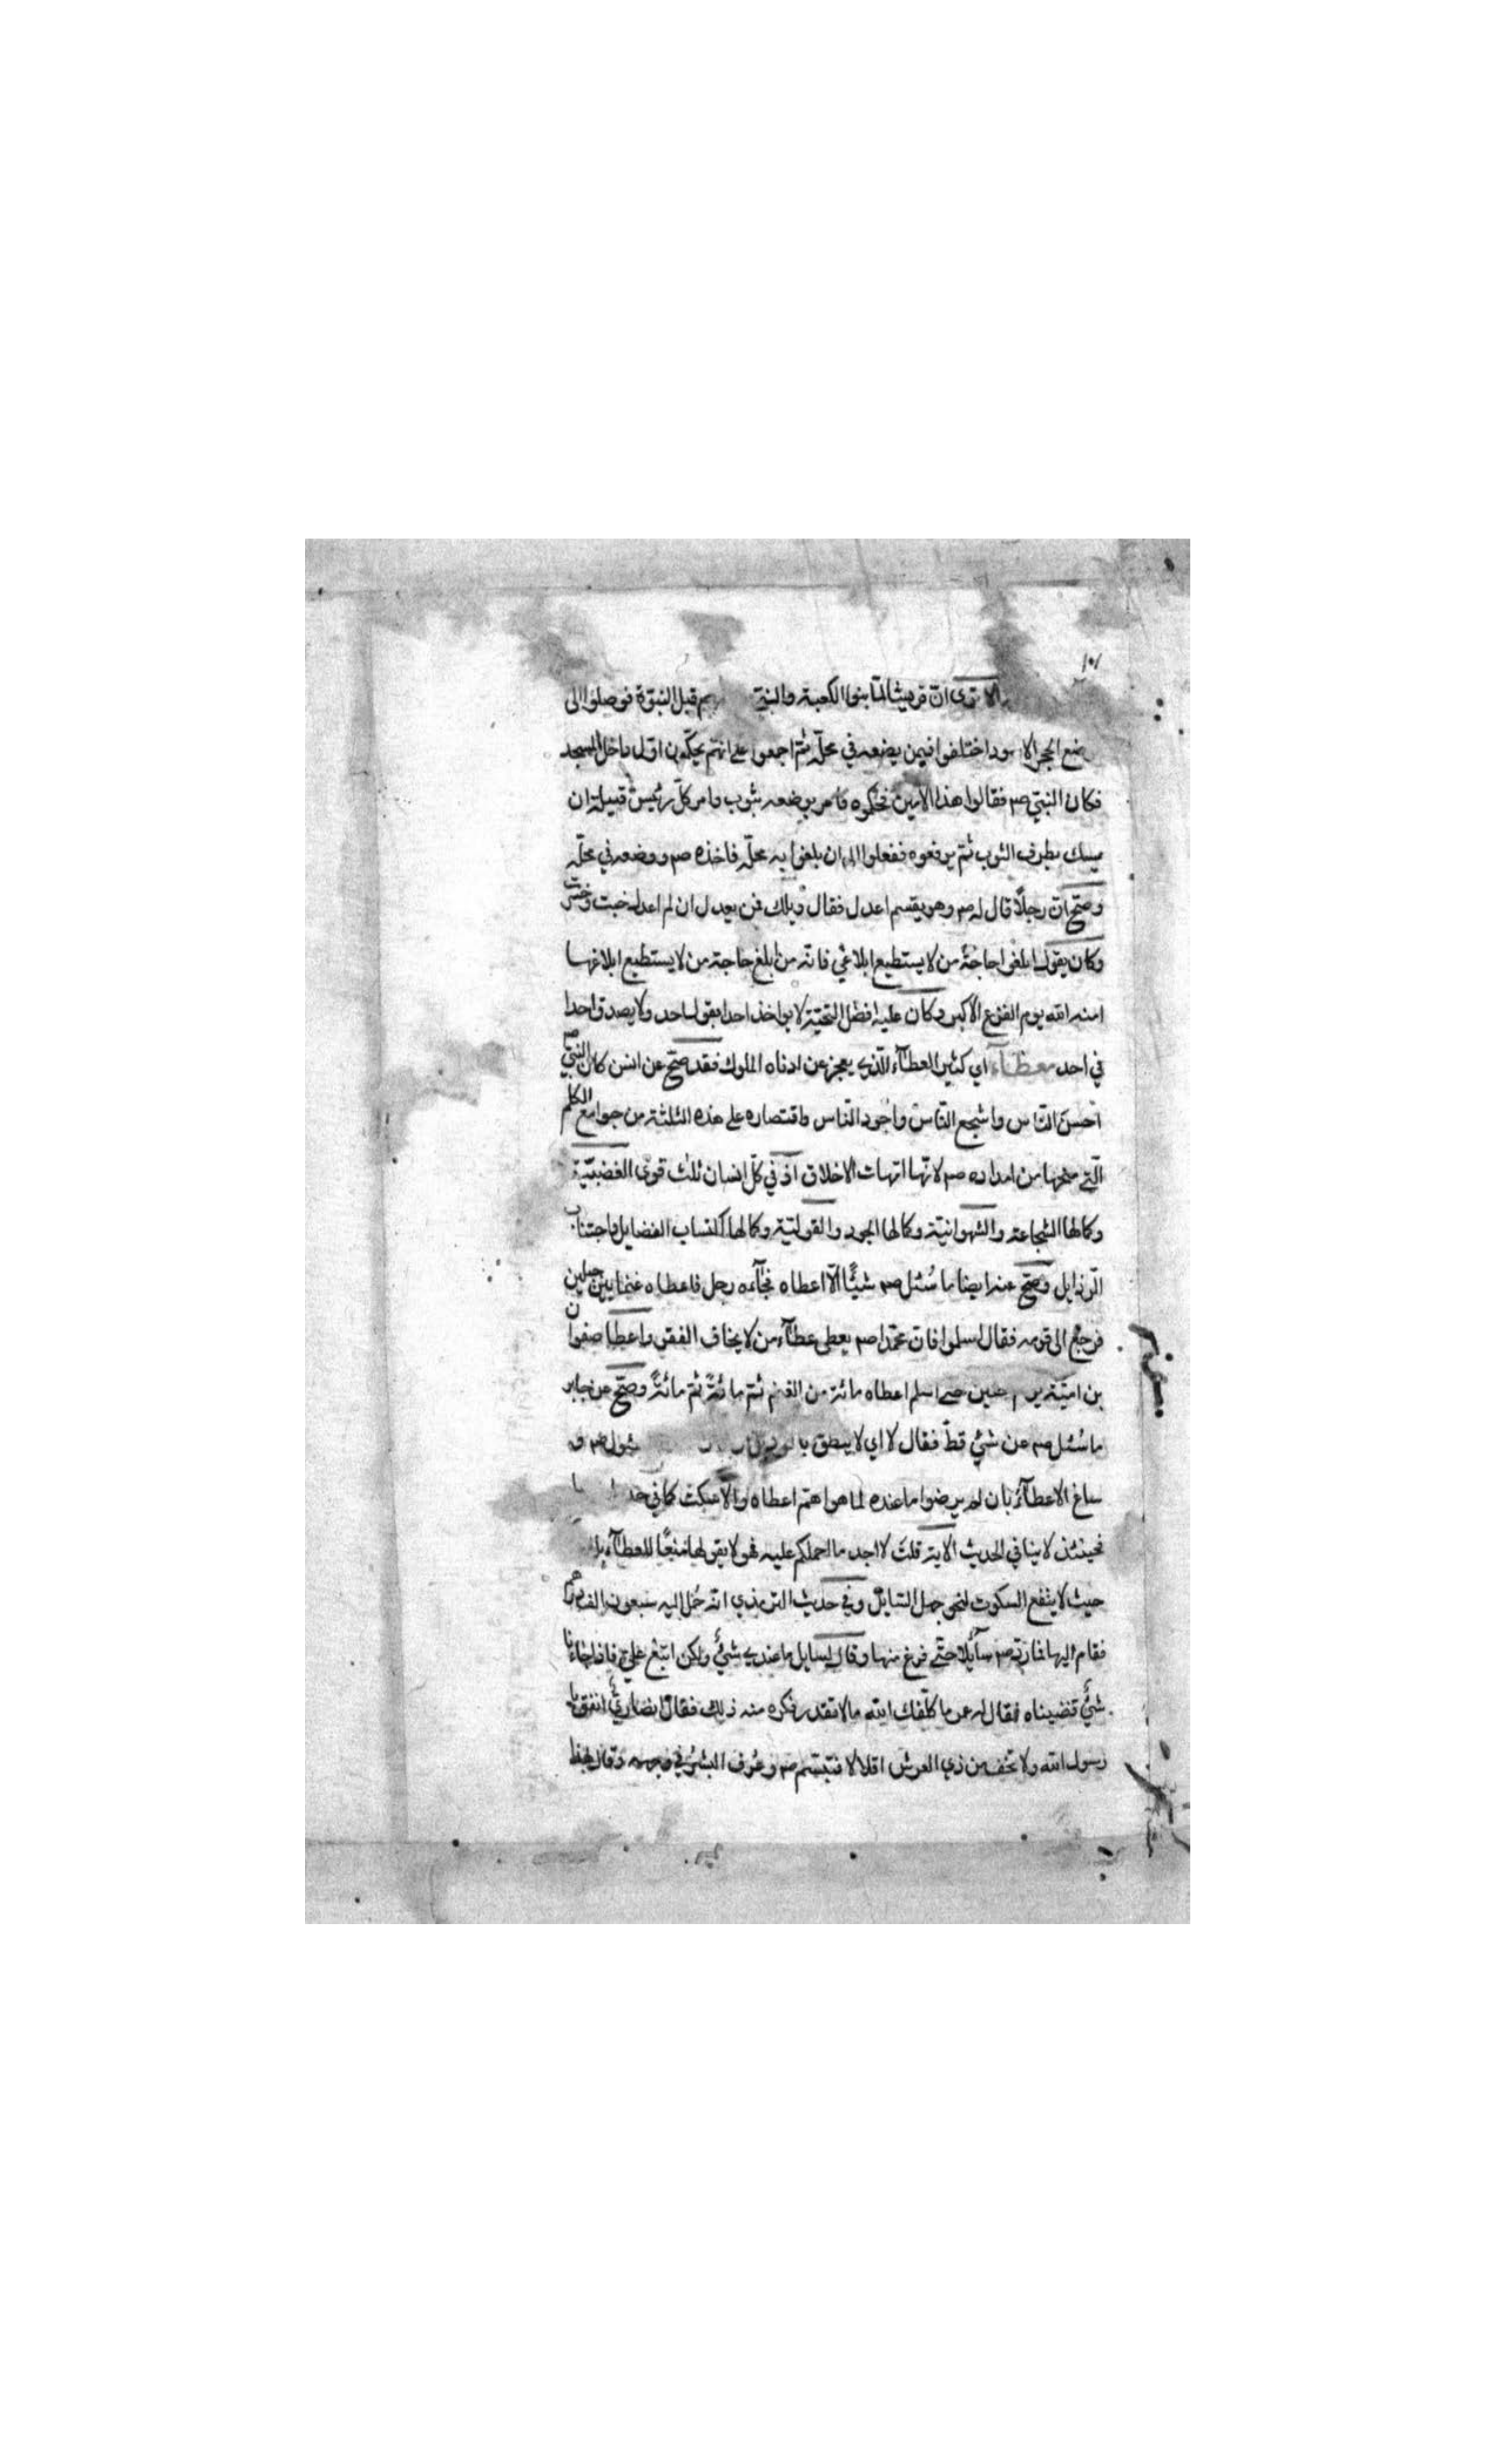 ١٠١
الا ترى ان قريشا لمّا بنوا الكعبة والنبيّ قبل النبوّة فوصلوا الى
الحجر الاسود اختلفوا فيمن يضعه في محلّه ثمّ اجمعوا على انهم يحكّمون اوّل داخل المسجد
فكان النبيّ صم فقالوا هذا الامين فحكموه فامر بوضعه بثوب وامر كلّ رئيس قبيلة ان
يمسك بطرف الثوب ثمّ يرفعوه ففعلوا الى ان بلغوا به محلّه فاخذه صم ووضعه في محلّه
وصحّ ان رجلاً قال له صم وهو يقسم اعدل فقال ويلك فمن يعدل ان لم اعدل خبت وخسرت
وكان يقول ابلغوا حاجة من لا يستطيع ابلاغي فانّه من ابلغ حاجة من لا يستطيع ابلاغها
امنه الله يوم الفزع الاكبر وكان عليه افضل التحيّة لا يواخذ احدا بقول احد ولا يصدق احدا
في احد معطاء اي كثير العطآء الّذي يعجز عن ادناه الملوك فقد صحّ عن انس كان النبيّ صم
احسن النّاس واشجع النّاس واجود النّاس واقتصاره على هذه الثلثة من جوامع الكلم
الّتي منحها من امداده صم لانّها امّهات الاخلاق اذ في كلّ انسان ثلث قوى الغضبيّة
وكمالها الشجاعة والشهوانيّة وكمالها الجود والقوليّة وكمالها اكتساب الفضايل واجتناب
الرّذايل وصحّ عنه ايضا ما سُئل صم شيئًا الّا اعطاه فجآءه رجل فاعطاه غنما بين جبلين
فرجع الى قومه فقال اسلموا فان محمّدا صم يعطي عطآء من لا يخاف الفقر واعطا صفوان
بن اميّة يوم حنين اعطاه مائة من الغنم ثمّ مائةً ثمّ مائةً وصحّ عن جابر
ما سُئل صم عن شئ قطّ فقال لا اي لا ينطق
ساغ الاعطآء بان لم يرضوا ما عنده لما هو اهمّ اعطاه والّا سكت كما في
فحينئذ لا ينافي الحديث الاية قلتَ لا اجد ما احملكم عليه فهو لا يقولها منعًا للعطآء بل
حيث لا ينفع السكوت لنحو جهل السّايل وفي حديث الترمذي انّه حُمل اليه سبعون الف درهم
فقام اليها فما ردّ صم سآئلا حتّى فرغ منها وقال لسايل ما عندي شئ ولكن ابتغ عليّ فاذا جاءنا
شئ قضيناه فقال له عمر ما كلّفك الله ما لا تقدر فكره منه ذلك فقال انصاريّ انفق يا
رسول الله ولا تخف من ذي العرش اقلالا فتبسّم صم وعُرف البشرُ في وجهه وقال بهذا